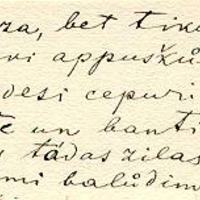 za, bet tik
vi appušķū
desi cepuri
e un banti
tādas zilas
mi balūdim